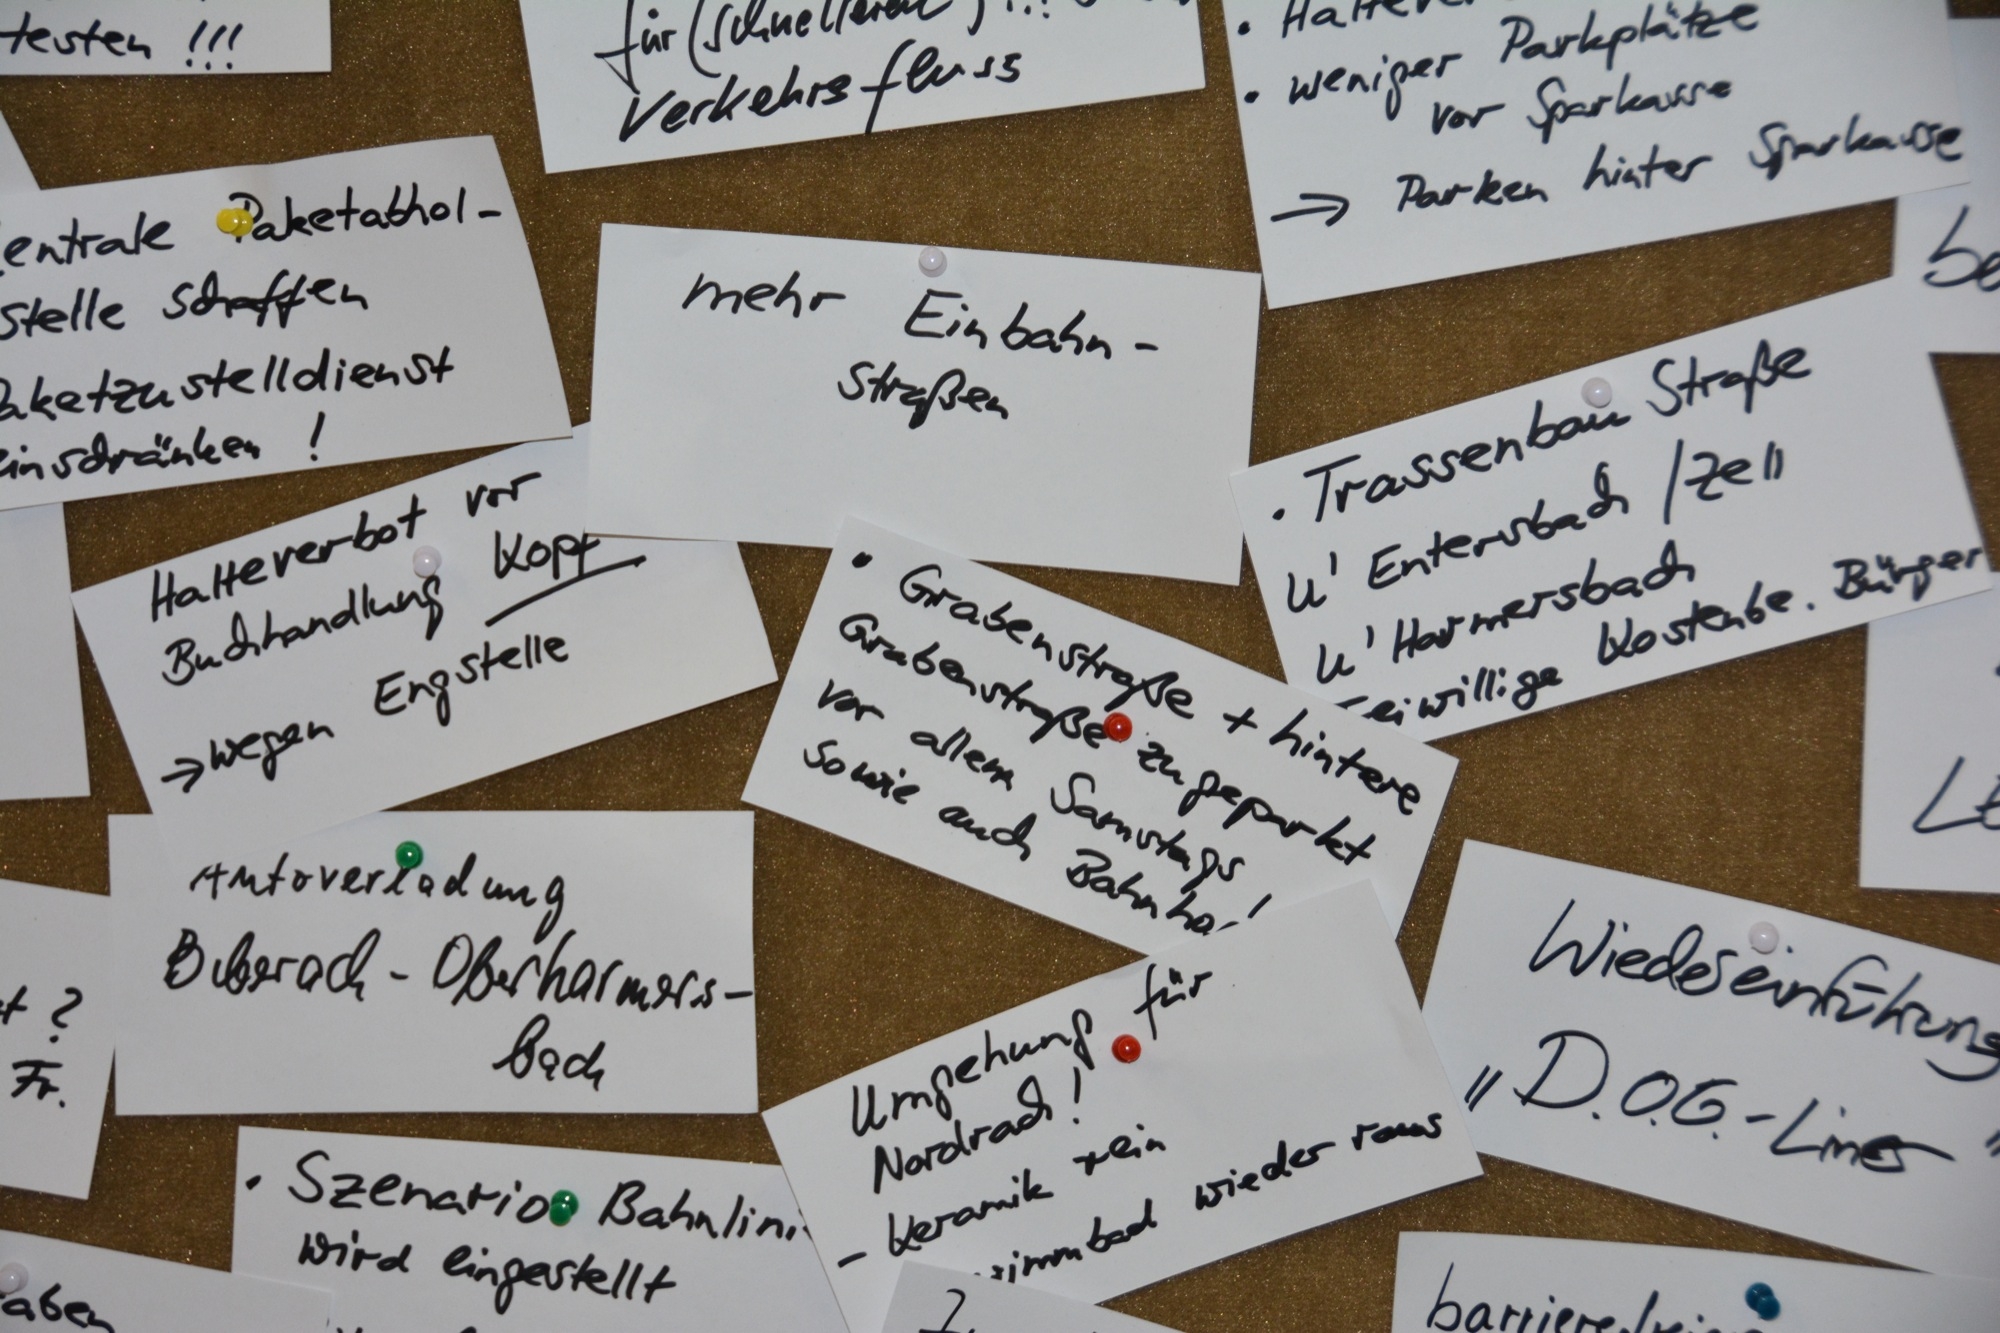 testen !!!
für (schnelleren)
Verkehrsfluss
• weniger Parkplätze
vor Sparkasse
→ Parken hinter Sparkasse
entrale Paketabhol-
stelle schaffen
aketzustelldienst
einschränken !
mehr Einbahn-
straßen
• Trassenbau Straße
U' Entersbach / Zell
U' Harmersbach
eiwillige Kostenbe. Bürger
Halteverbot vor
Buchhandlung Kopf
→ wegen Engstelle
• Grabenstraße + hintere
Grabenstraße zugeparkt
vor allem Samstags
sowie auch Bahnho
Autoverladung
Biberach - Oberharmers-
bach
? 
Fr.
Umgehung für
Nordrach!
- Keramik rein
wimmbad wieder raus
Wiedereinführung
"D.O.G.-Liner"
• Szenario Bahnlini
wird eingestellt
aben